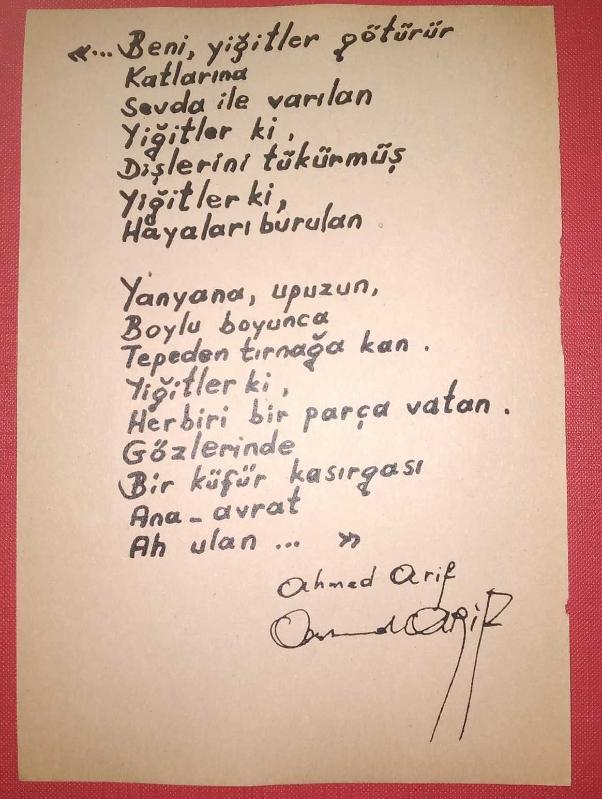 «... Beni, yiğitler götürür
Katlarına
Sevda ile varılan
Yiğitler ki,
Dişlerini tükürmüş
Yiğitler ki,
Hayaları burulan
Yanyana, upuzun,
Boylu boyunca
Tepeden tırnağa kan.
Yiğitler ki,
Herbiri bir parça vatan.
Gözlerinde
Bir küfür kasırgası
Ana-avrat
Ah ulan ... »
Ahmed Arif
Ahmed Arif